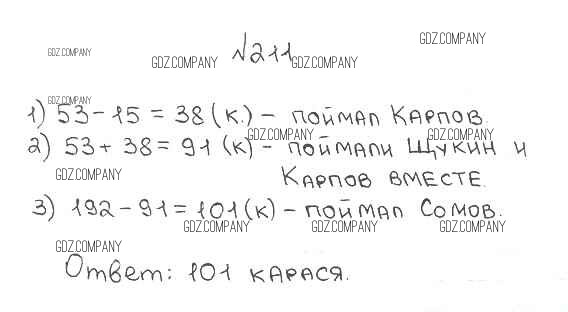 GDZ.COMPANY
GDZ.COMPANY №211 GDZ.COMPANY
GDZ.COMPANY
GDZ.COMPANY
1) 53-15=38(к.)- поймал Карпов.
GDZ.COMPANY GDZ.COMPANY
2) 53+38=91(к)- поймали Щукин и
GDZ.COMPANY Карпов вместе.
3) 192-91=101(к)- поймал Сомов.
GDZ.COMPANY GDZ.COMPANY GDZ.COMPANY
GDZ.COMPANY
Ответ: 101 карася.